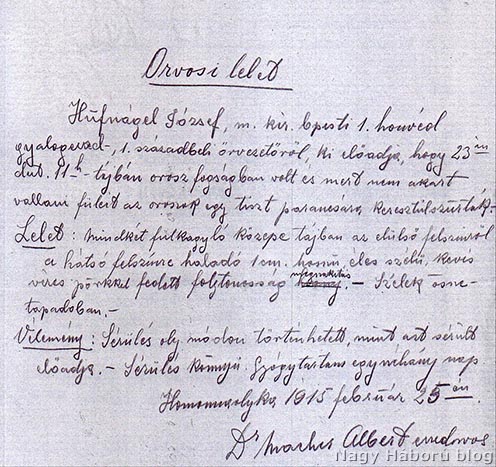 Orvosi lelet
Hufnágel József, m. kir. bpesti 1. honvéd
gyalogezred, 1. századbeli őrvezetőről, ki előadja, hogy 23-án
dut. 11h tájban orosz fogságban volt és mert nem akart
vallani füleit az oroszok egy tiszt parancsára keresztülszurták.-
Lelet: mindkét fülkagyló közepe tájban az elülső felszinről
a hátsó felszinre haladó 1 cm. hosszu, éles szélü, kevés
véres pörkkel fedett folytonosság megszakitás.- Szélek össze-
tapadóban.-
Vélemény: Sérülés oly módon történhetett, mint azt sérült
előadja.- Sérülés könnyü. Gyógytartam egynéhány nap
1915 február 25-én
Dr Albert ezredorvos
Nagy Háború blog